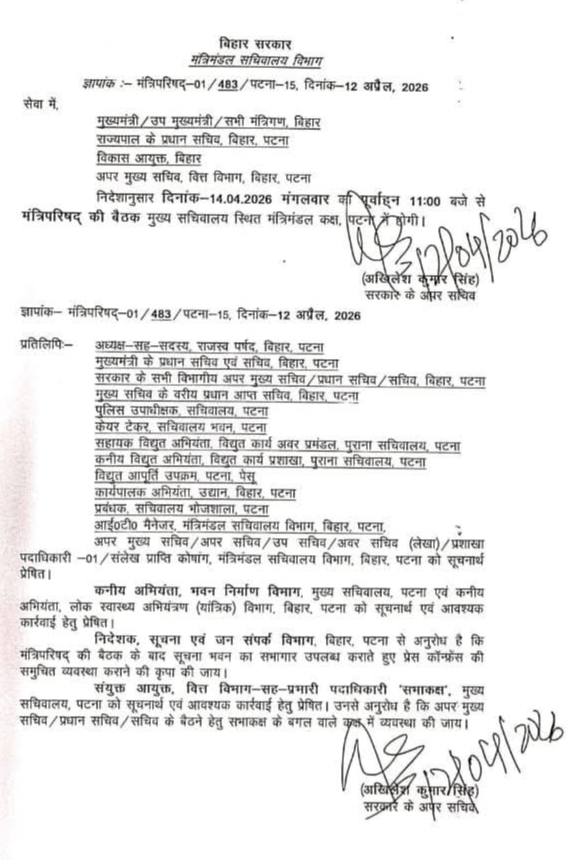 बिहार सरकार
मंत्रिमंडल सचिवालय विभाग
ज्ञापांक :– मंत्रिपरिषद्–01/483/पटना–15, दिनांक–12 अप्रैल, 2026
सेवा में,
मुख्यमंत्री/उप मुख्यमंत्री/सभी मंत्रिगण, बिहार
राज्यपाल के प्रधान सचिव, बिहार, पटना
विकास आयुक्त, बिहार
अपर मुख्य सचिव, वित्त विभाग, बिहार, पटना
निदेशानुसार दिनांक–14.04.2026 मंगलवार को पूर्वाहन 11:00 बजे से
मंत्रिपरिषद् की बैठक मुख्य सचिवालय स्थित मंत्रिमंडल कक्ष, पटना में होगी।
12/04/2026
(अखिलेश कुमार सिंह)
सरकार के अपर सचिव
ज्ञापांक– मंत्रिपरिषद्–01/483/पटना–15, दिनांक–12 अप्रैल, 2026
प्रतिलिपिः– अध्यक्ष–सह–सदस्य, राजस्व पर्षद, बिहार, पटना
मुख्यमंत्री के प्रधान सचिव एवं सचिव, बिहार, पटना
सरकार के सभी विभागीय अपर मुख्य सचिव/प्रधान सचिव/सचिव, बिहार, पटना
मुख्य सचिव के वरीय प्रधान आप्त सचिव, बिहार, पटना
पुलिस उपाधीक्षक, सचिवालय, पटना
केयर टेकर, सचिवालय भवन, पटना
सहायक विद्युत अभियंता, विद्युत कार्य अवर प्रमंडल, पुराना सचिवालय, पटना
कनीय विद्युत अभियंता, विद्युत कार्य प्रशाखा, पुराना सचिवालय, पटना
विद्युत आपूर्ति उपक्रम, पटना, पेसू
कार्यपालक अभियंता, उद्यान, बिहार, पटना
प्रबंधक, सचिवालय भोजशाला, पटना
आई०टी० मैनेजर, मंत्रिमंडल सचिवालय विभाग, बिहार, पटना,
अपर मुख्य सचिव/अपर सचिव/उप सचिव/अवर सचिव (लेखा)/प्रशाखा
पदाधिकारी –01/संलेख प्राप्ति कोषांग, मंत्रिमंडल सचिवालय विभाग, बिहार, पटना को सूचनार्थ
प्रेषित।
कनीय अभियंता, भवन निर्माण विभाग, मुख्य सचिवालय, पटना एवं कनीय
अभियंता, लोक स्वास्थ्य अभियंत्रण (यांत्रिक) विभाग, बिहार, पटना को सूचनार्थ एवं आवश्यक
कार्रवाई हेतु प्रेषित।
निदेशक, सूचना एवं जन संपर्क विभाग, बिहार, पटना से अनुरोध है कि
मंत्रिपरिषद् की बैठक के बाद सूचना भवन का सभागार उपलब्ध कराते हुए प्रेस कॉन्फ्रेंस की
समुचित व्यवस्था कराने की कृपा की जाय।
संयुक्त आयुक्त, वित्त विभाग–सह–प्रभारी पदाधिकारी 'सभाकक्ष', मुख्य
सचिवालय, पटना को सूचनार्थ एवं आवश्यक कार्रवाई हेतु प्रेषित। उनसे अनुरोध है कि अपर मुख्य
सचिव/प्रधान सचिव/सचिव के बैठने हेतु सभाकक्ष के बगल वाले कक्ष में व्यवस्था की जाय।
12/04/2026
(अखिलेश कुमार सिंह)
सरकार के अपर सचिव